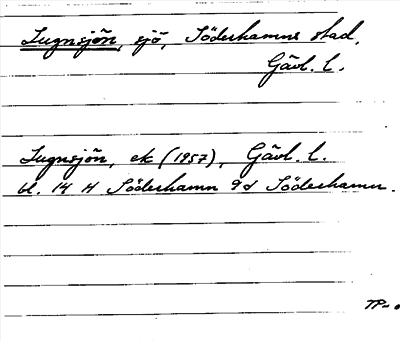 Lugnsjön, sjö, Söderhamns stad,
Gävl. l.
Lugnsjön, ek (1957), Gävl. l.
bl. 14 H Söderhamn 9d Söderhamn.